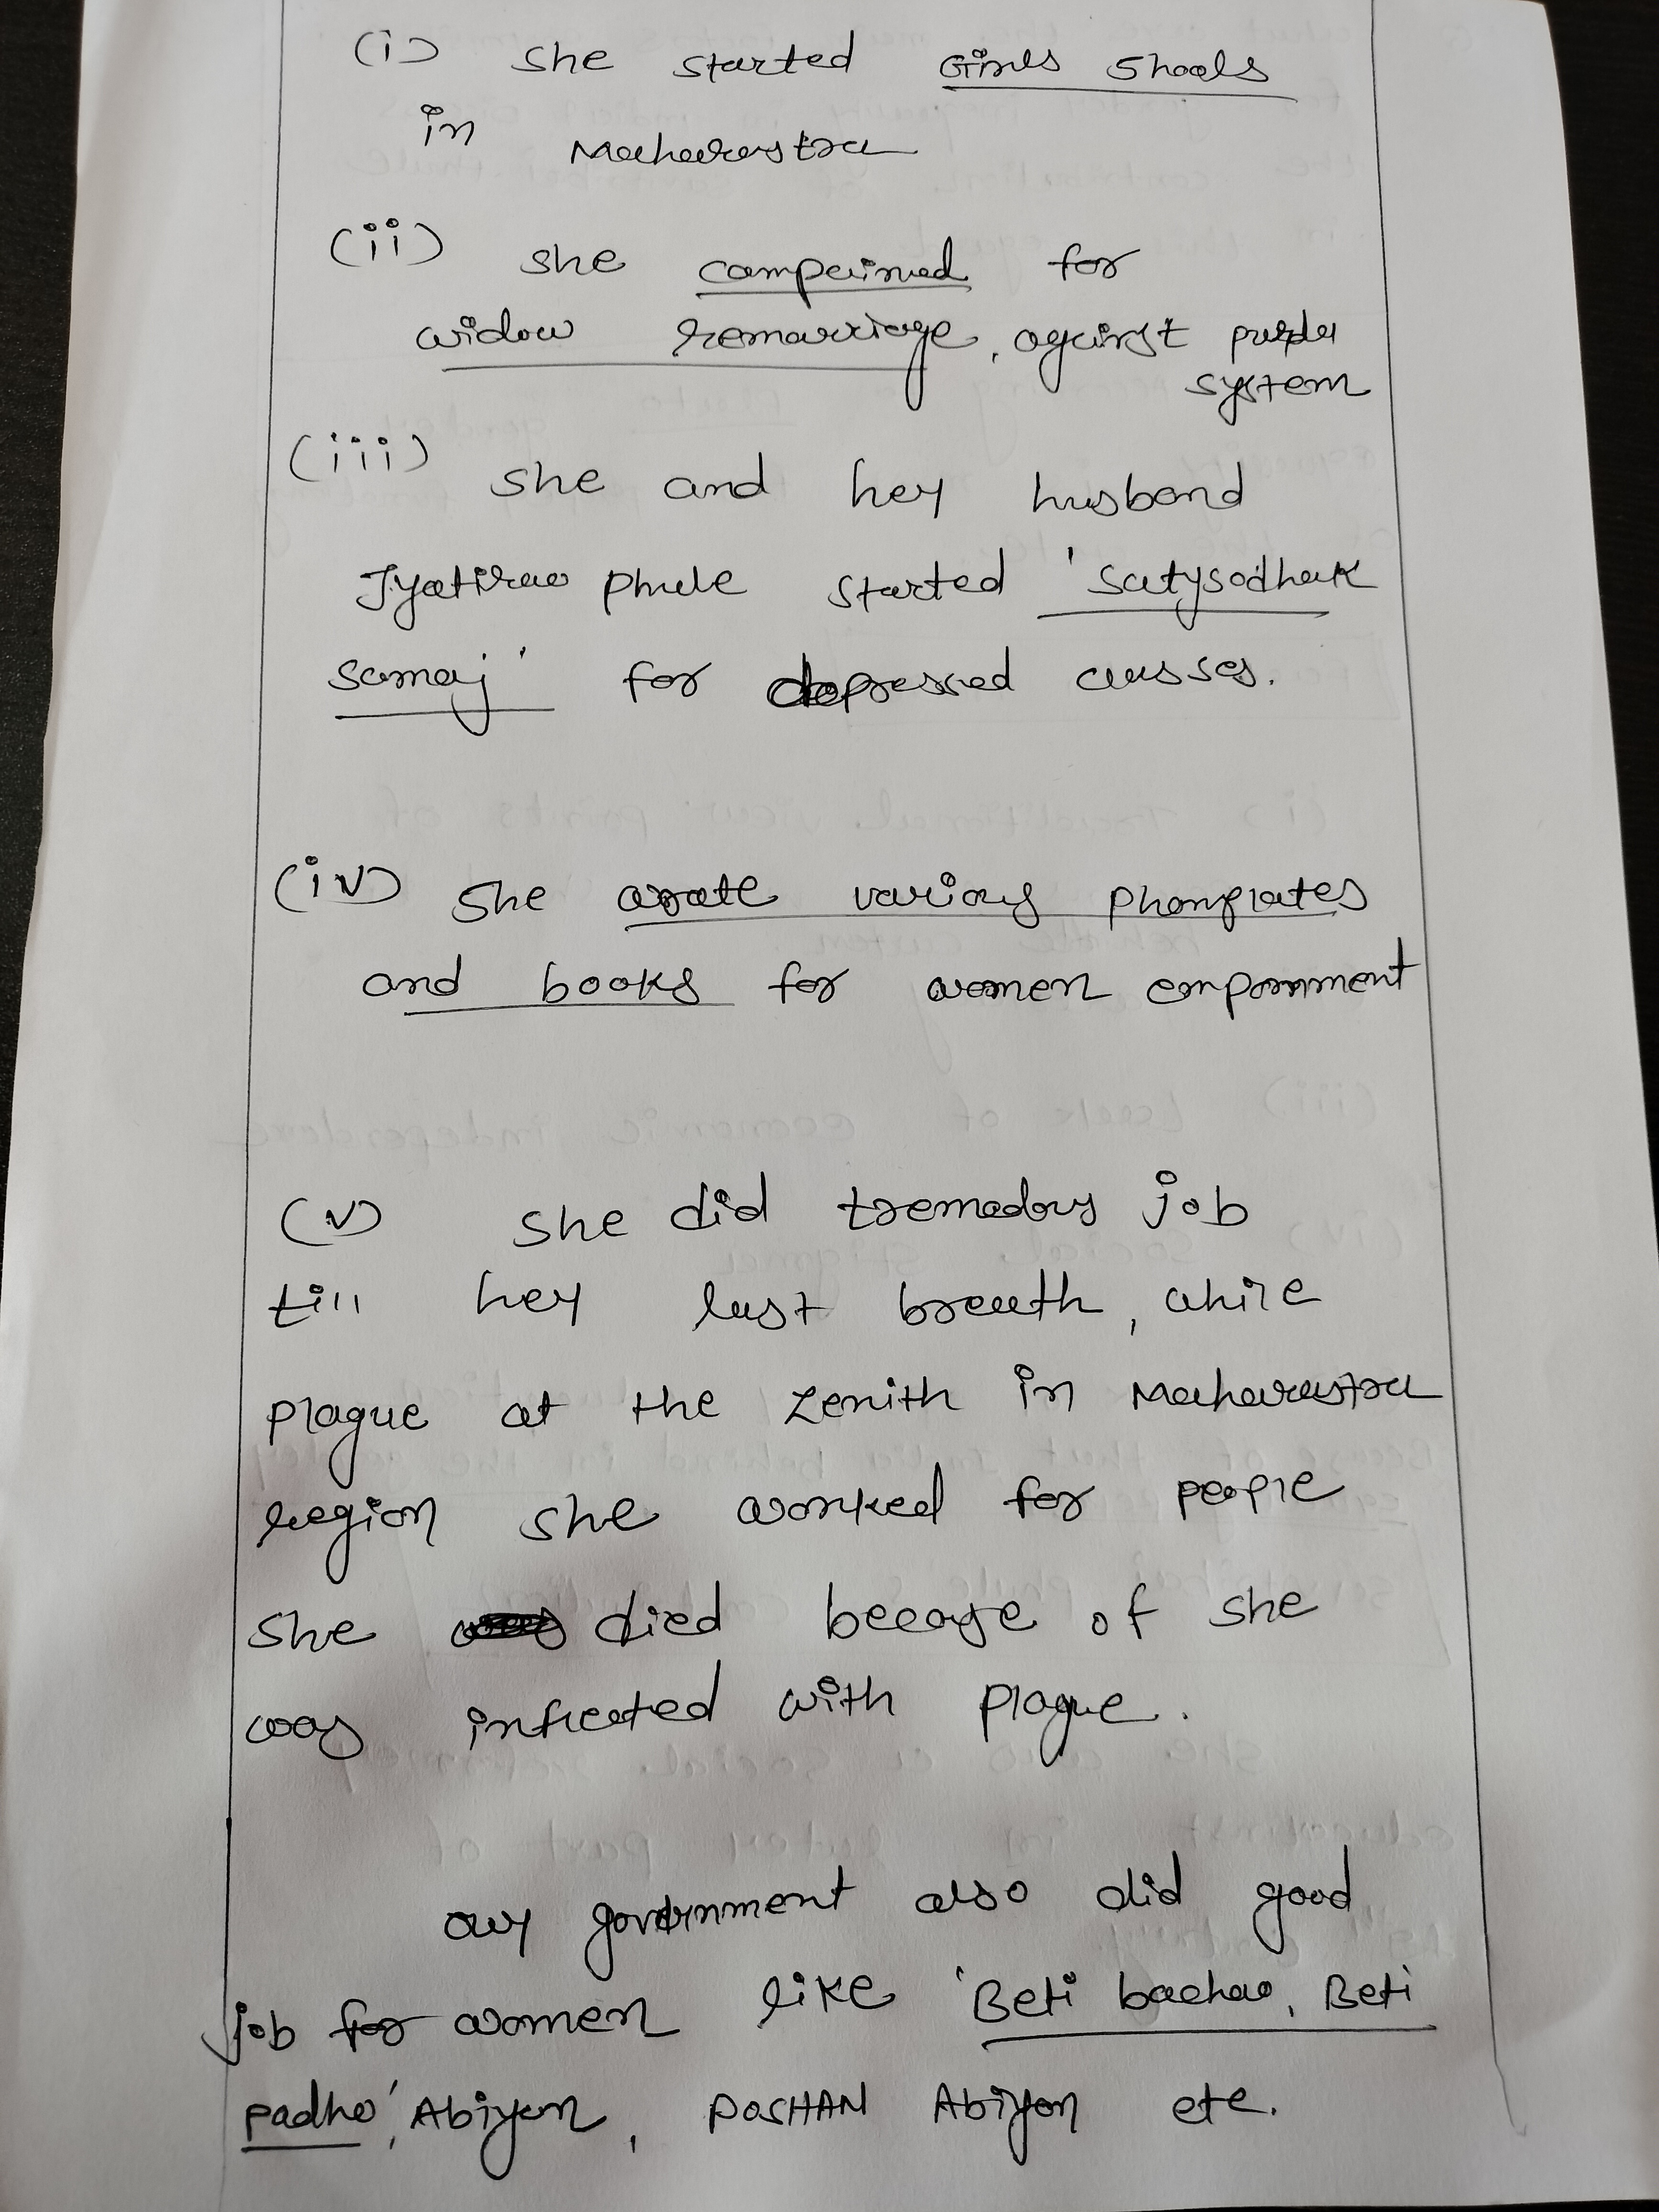 (i) she started Girls Shools
in Maharastra
(ii) she campeined for
widow remarriage, against purda
system
(iii) she and her husband
Jyotirao Phule started 'satysodhak
samaj' for depressed classes.
(iv) she wrote various Phamplates
and books for women
(v) she did tremedous job
till her last breath, while
plague at the zenith in Maharastra
region she worked for people
she died becouse of she
was infected with plague.
our government also did good
job for women like 'Beti bachao, Beti
padho', Abiyan, POSHAN Abiyan etc.